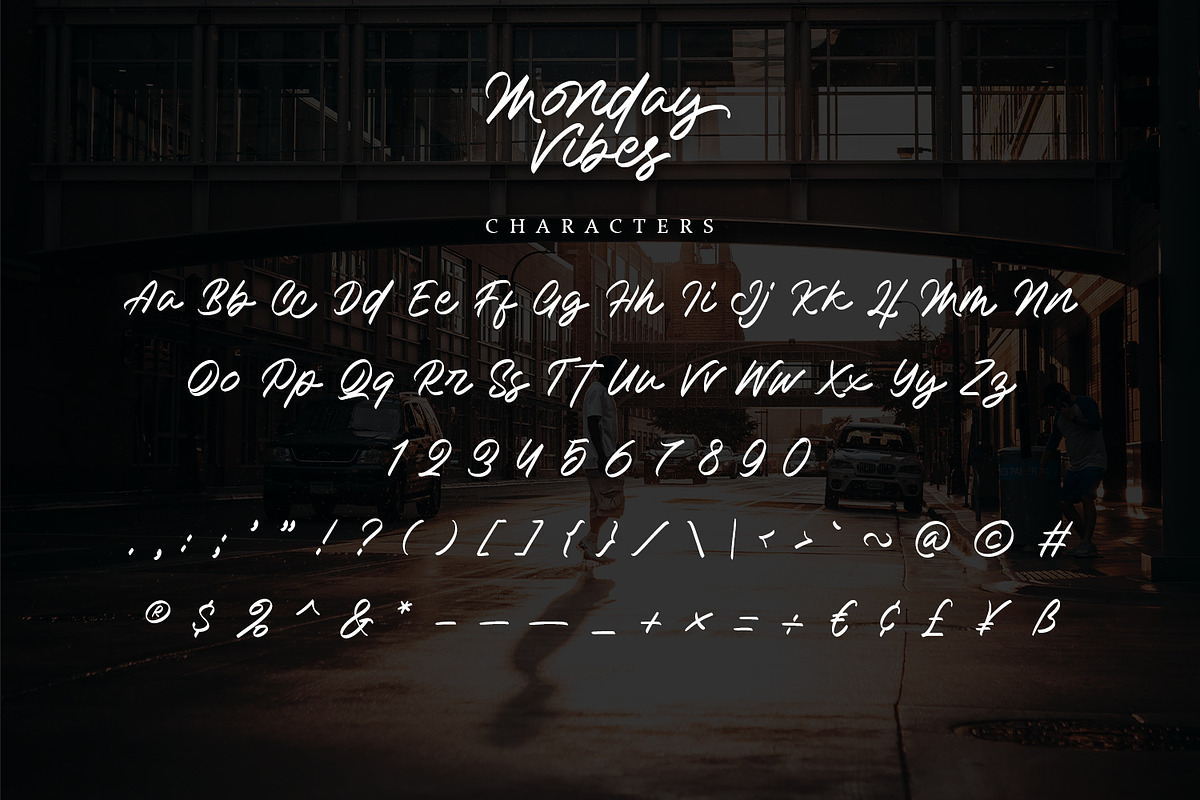 Monday
Vibes
CHARACTERS
Aa Bb Cc Dd Ee Ff Gg Hh Ii Jj Kk Ll Mm Nn
Oo Pp Qq Rr Ss Tt Uu Vv Ww Xx Yy Zz
1 2 3 4 5 6 7 8 9 0
. , : ; ’ ” ! ? ( ) [ ] { } / \ | < > ` ~ @ © #
® $ % ^ & * - – — _ + × = ÷ € ¢ £ ¥ ß